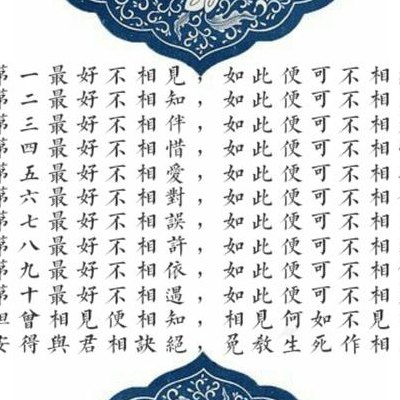 第一最好不相見，如此便可不相
第二最好不相知，如此便可不相
第三最好不相伴，如此便可不相
第四最好不相惜，如此便可不相
第五最好不相愛，如此便可不相
第六最好不相對，如此便可不相
第七最好不相誤，如此便可不相
第八最好不相許，如此便可不相
第九最好不相依，如此便可不相
第十最好不相遇，如此便可不相
但曾相見便相知，相見何如不見
安得與君相訣絕，免教生死作相